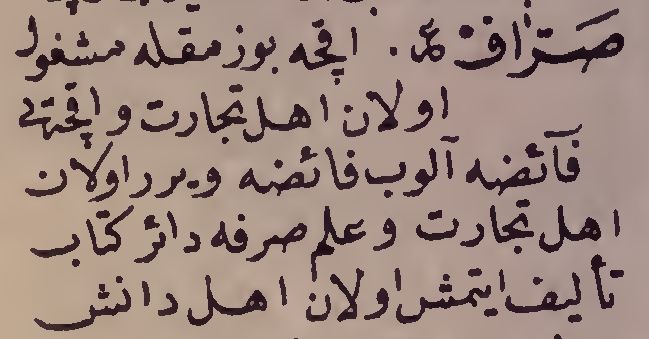 صرّاف ع. اقچه بوزمقله مشغول
اولان اهل تجارت و اقچه‌یی
فآئضه آلوب فائضه ویرر اولان
اهل تجارت و علم صرفه دائر کتاب
تألیف ایتمش اولان اهل دانش